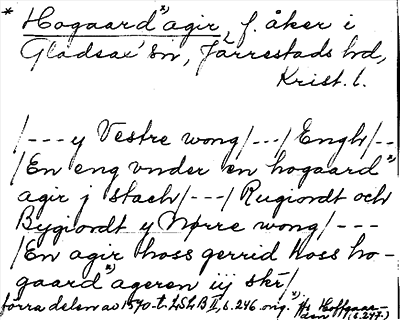 * Hogaard x) agir, f. åker i
Gladsax' sn, Järrestads hd,
Krist. l.
/--- y Vestre wong/---/Engh/--
/En eng vnder en hogaard x)
agir j stach/---/Rugiordt och
Bygiordt y Nørre wong/---
/En agir hoss gerrid hoss ho-
gaard x) ageren iij skr/
förra delen av 1570-t. LSLB I, s. 246. orig. x) Hs Hoffgaar-
den (s. 247.)